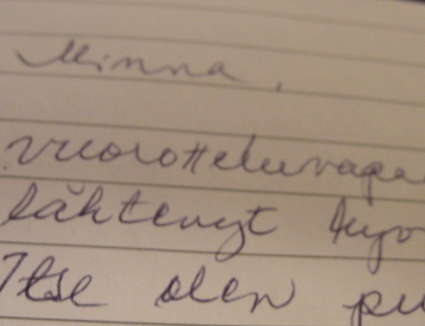 Minna,
vuorotteluvapa
lähtenyt
Itse olen